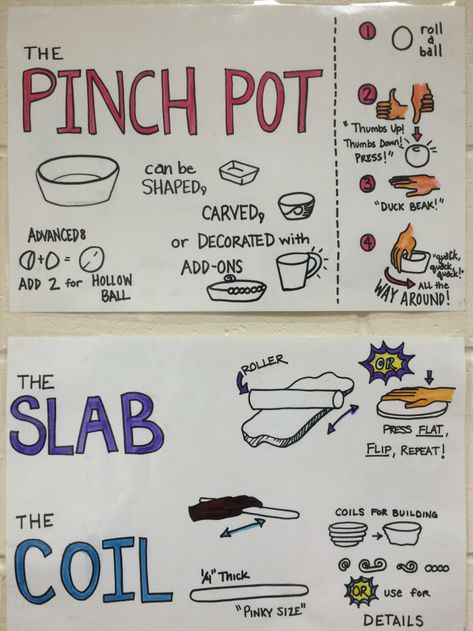 THE
PINCH POT
can be
SHAPED,
CARVED,
or DECORATED with
ADD-ONS
ADVANCED:
+ =
ADD 2 for HOLLOW
BALL
1 roll
a
ball
2
"Thumbs Up!
Thumbs Down!
PRESS!"
3
"DUCK BEAK!"
4
"quack,
quack,
quack!"
ALL the
WAY AROUND!
THE
SLAB
ROLLER
OR
PRESS FLAT,
FLIP, REPEAT!
THE
COIL
1/4" THICK
"PINKY SIZE"
COILS FOR BUILDING
OR use for
DETAILS